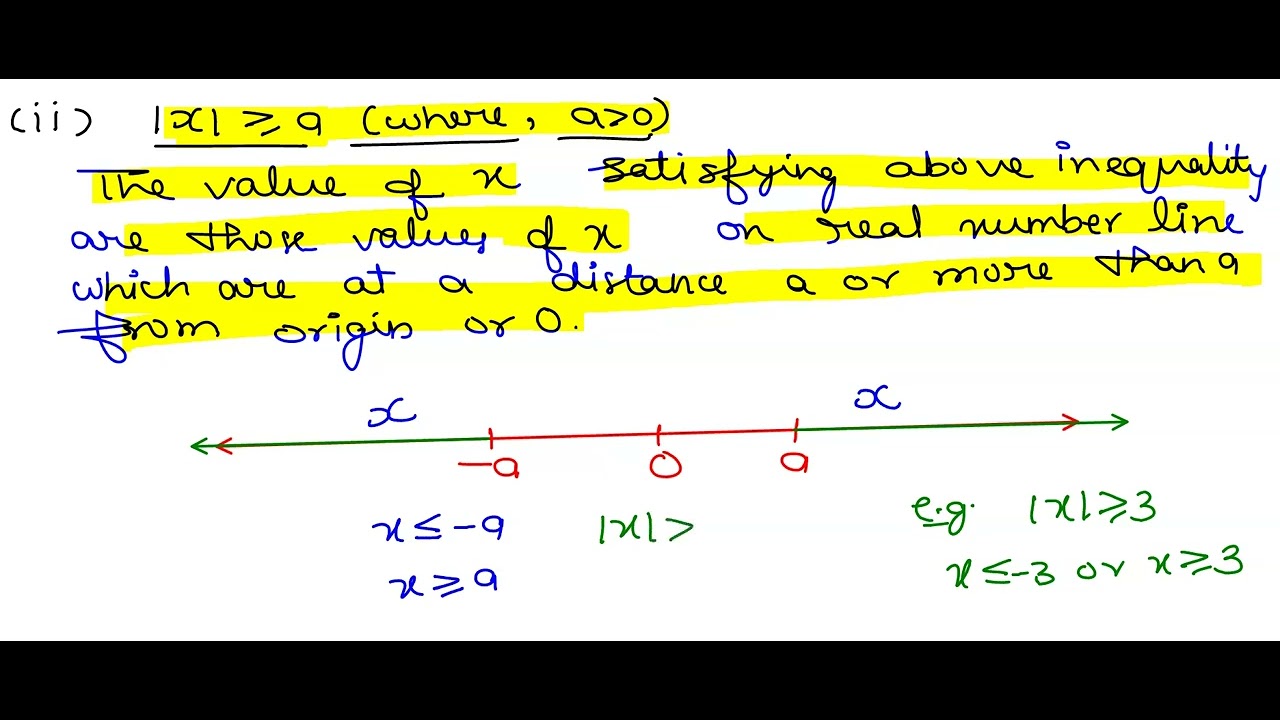 (ii) |x| ≥ a (where, a>0)
The value of x satisfying above inequality
are those values of x on real number line
which are at a distance a or more than a
from origin or 0.
x x
-a 0 a
x ≤ -a |x| > e.g. |x| ≥ 3
x ≥ a x ≤ -3 or x ≥ 3